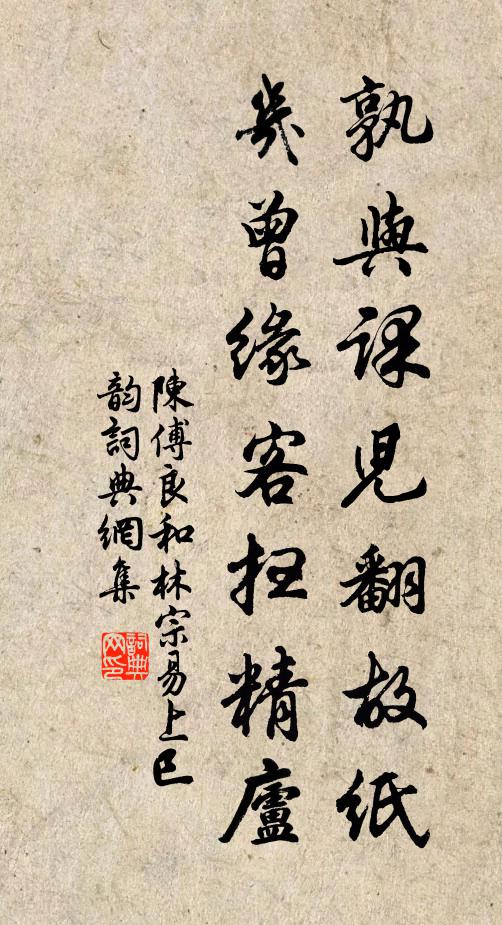 孰與課兒翻故紙
幾曾緣客掃精廬
陳傅良和林宗易上巳
韵詞典網集
詞典
网印